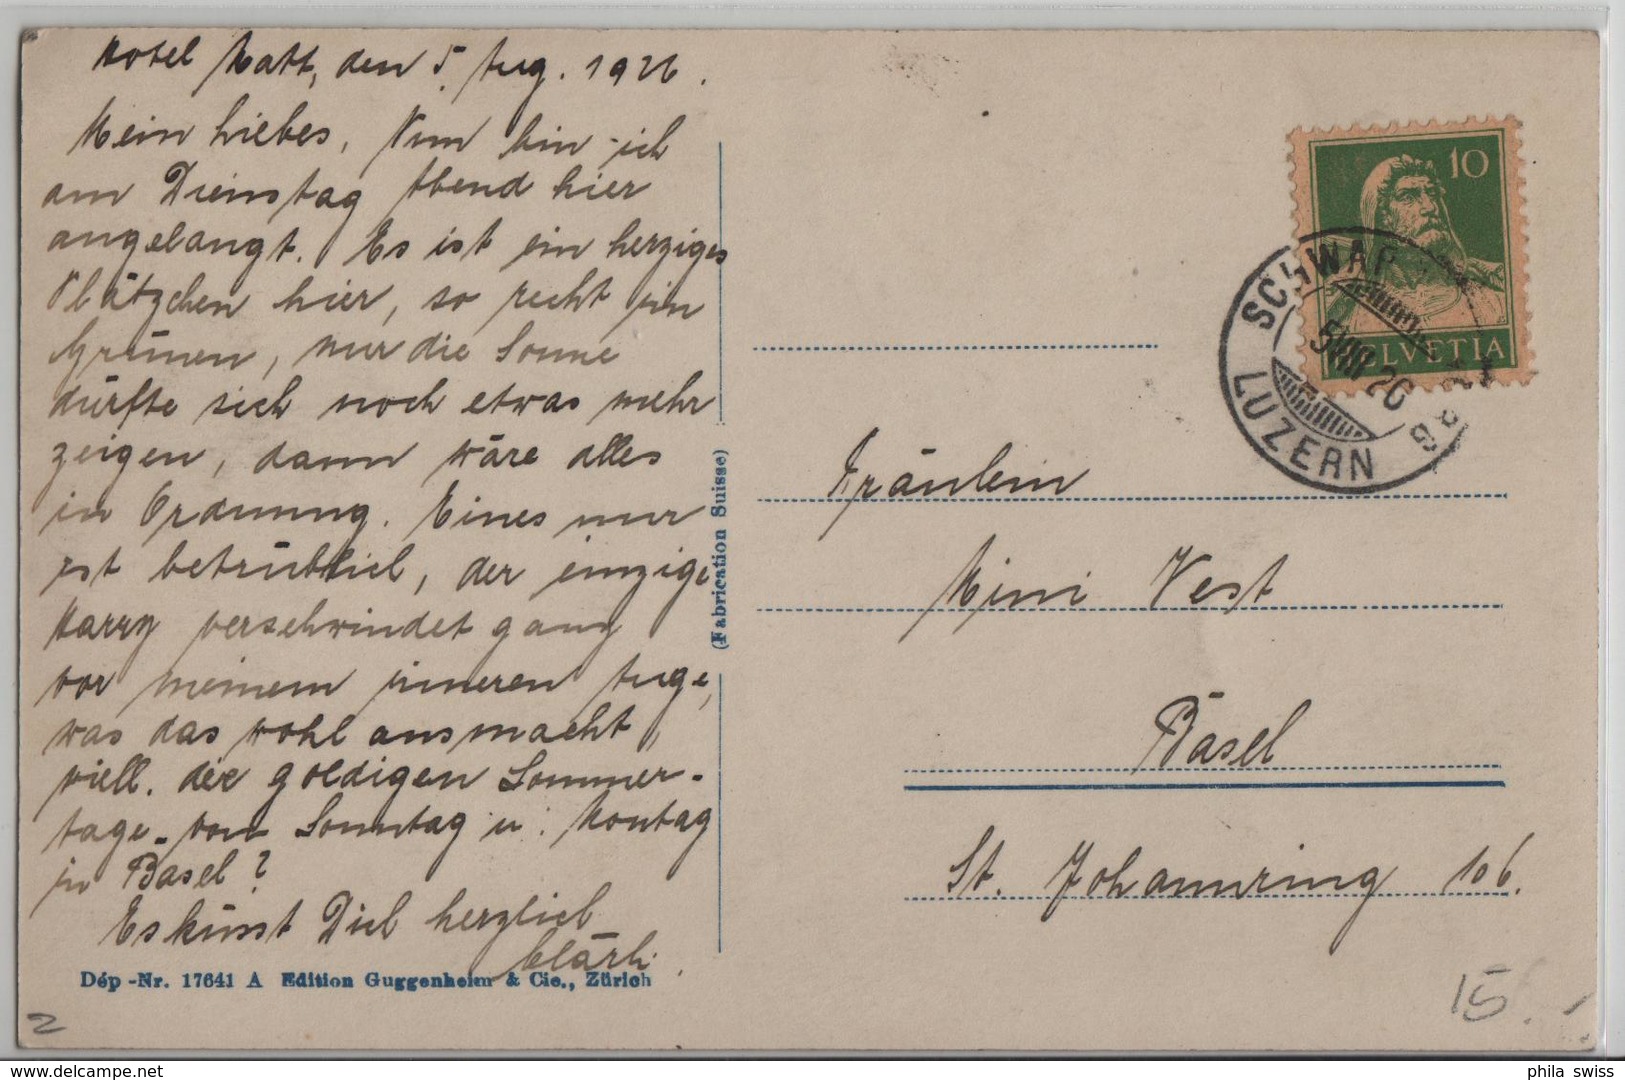 Hotel Matt, den 5. Aug. 1926.
Mein Liebes, Nun bin ich
am Dienstag Abend hier
angelangt. Es ist ein herziges
Plätzchen hier, so recht im
Grünen, nur die Sonne
dürfte sich noch etwas mehr
zeigen, dann wäre alles
in Ordnung. Eines nur
ist betrüblich, der einzige
Harry verschwindet ganz
vor meinem inneren Auge,
was das wohl ausmacht,
viell. die goldigen Sommer-
tage von Sonntag u. Montag
in Basel?
Es küsst Dich herzlich
Clärli.
Dép -Nr. 17641 A Edition Guggenheim & Cie., Zürich
2
(Fabrication Suisse)
10
HELVETIA
LUZERN
5 VIII 26
Fräulein
Mimi Vest
Basel
St. Johannring 106.
15.-
delcampe.net
phila swiss